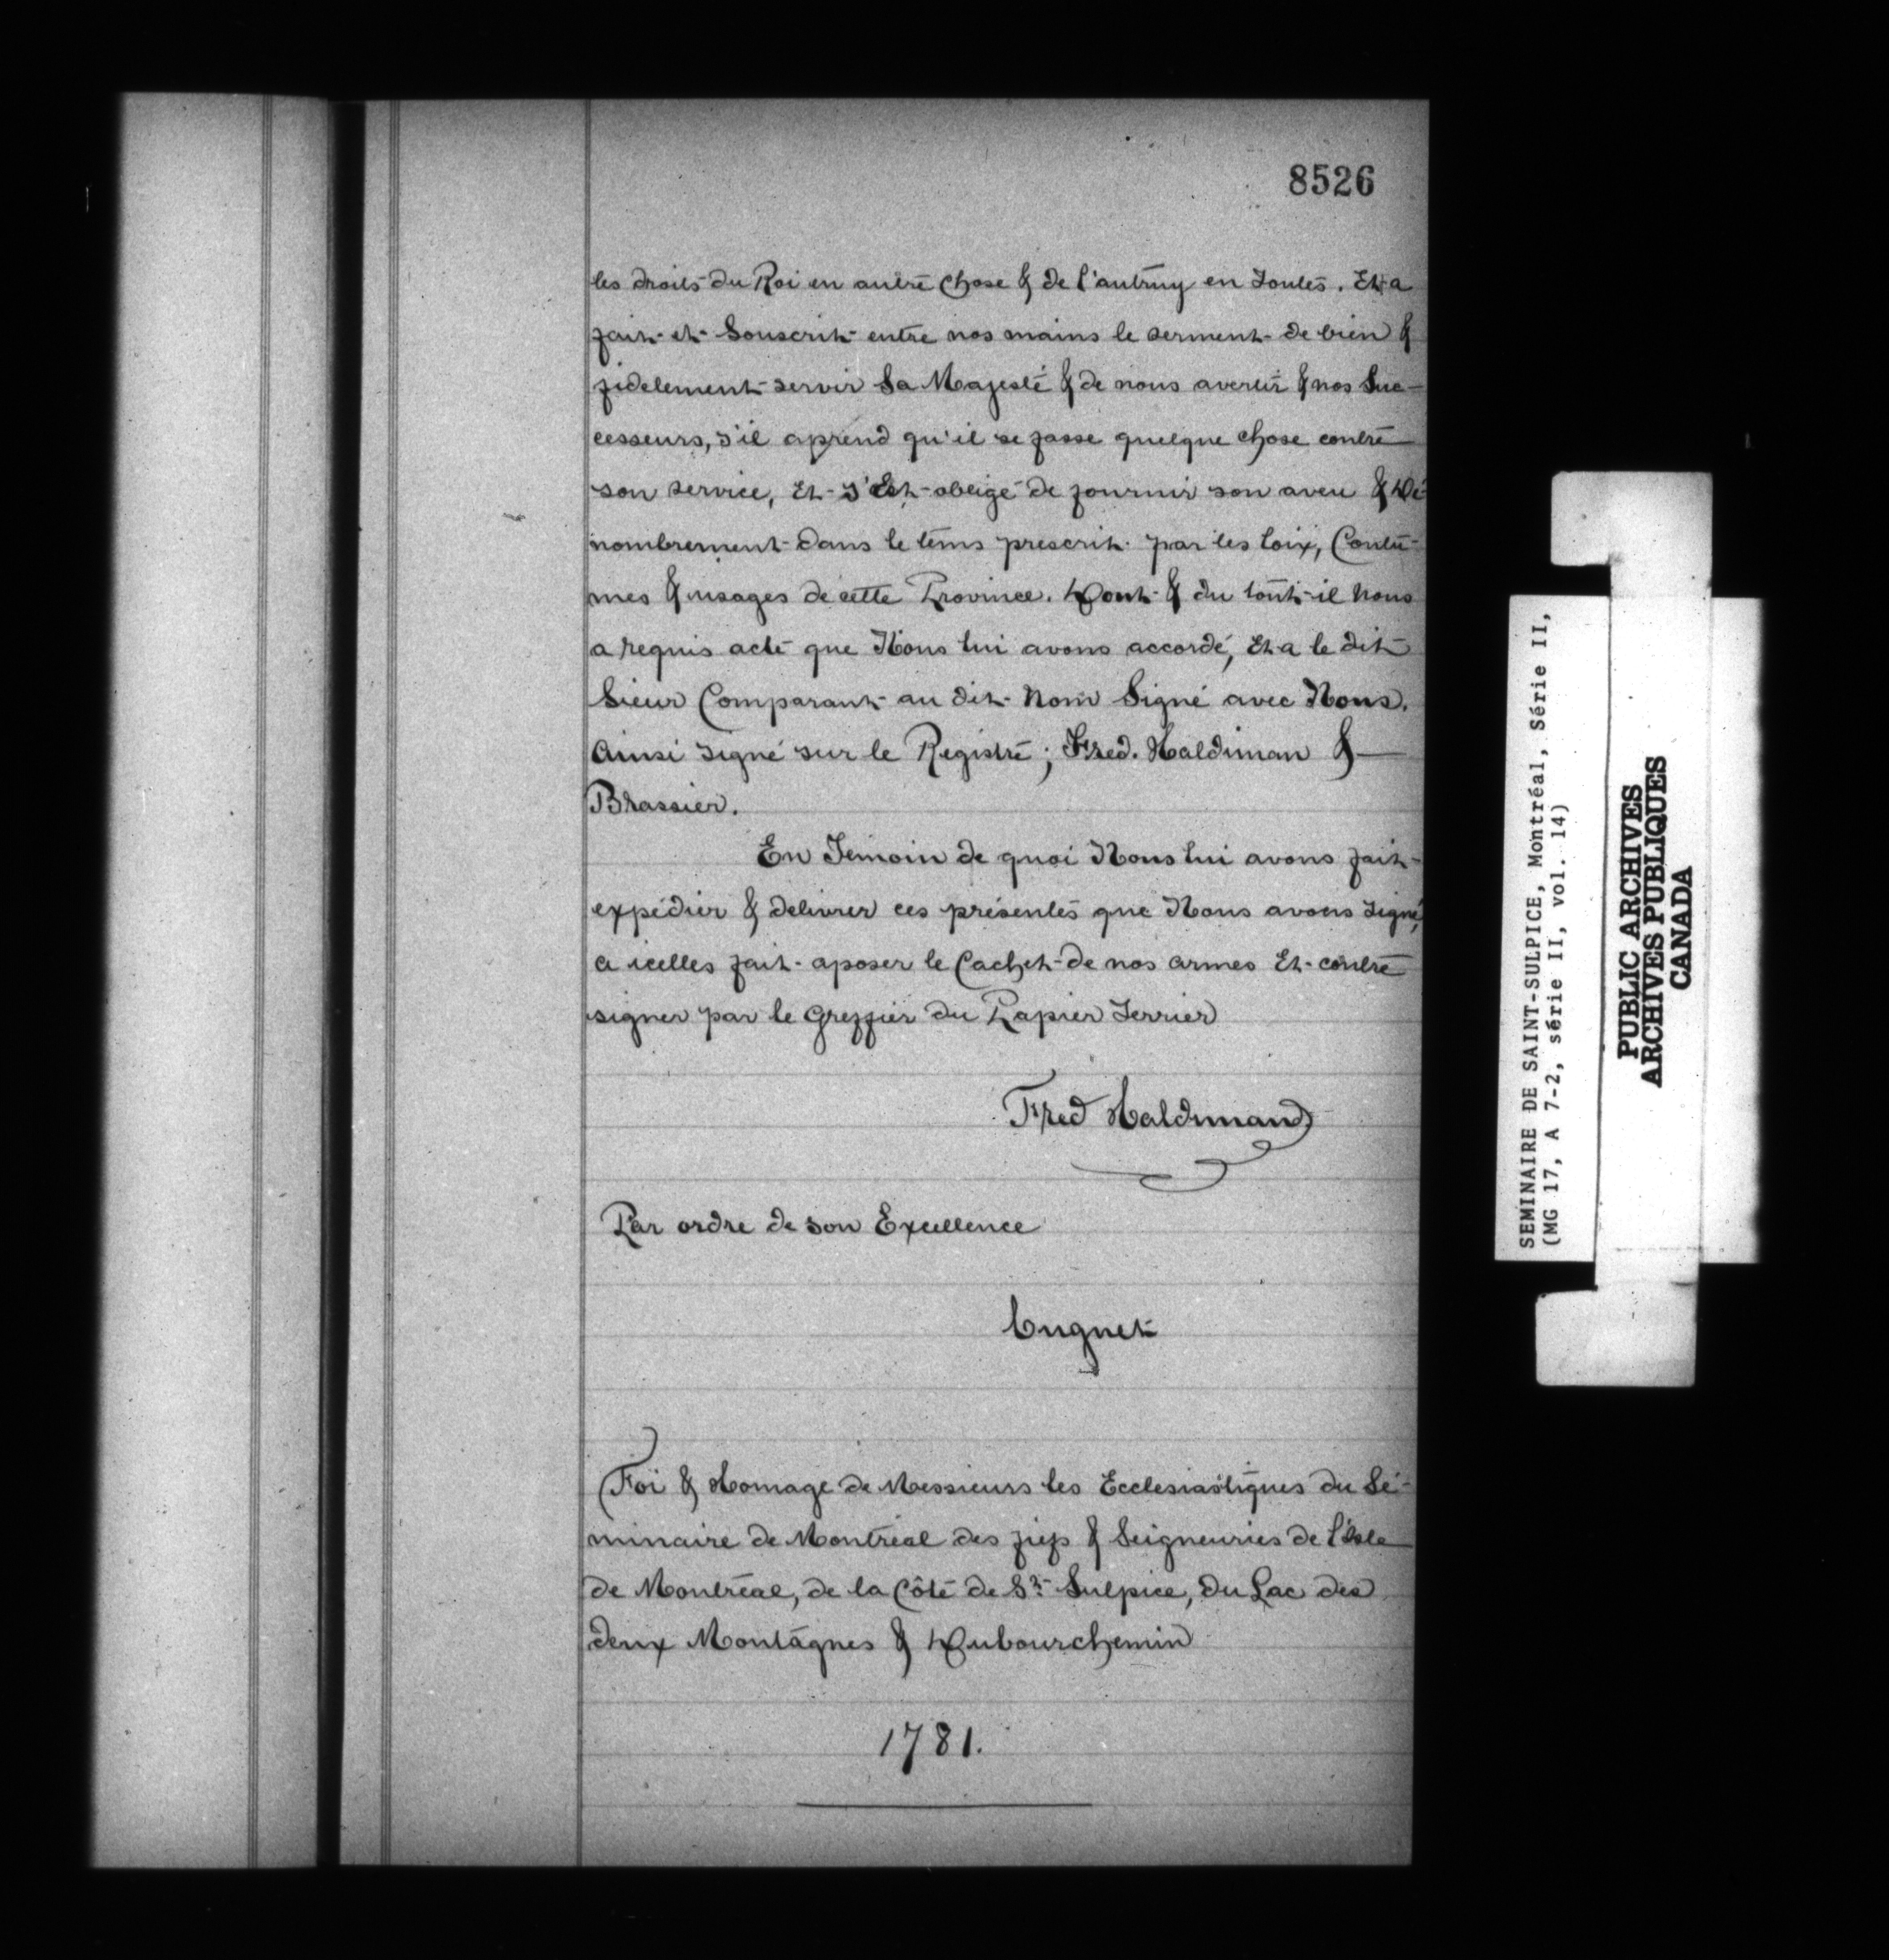 8526
les droits du Roi en autre Chose & de l'autruy en Toutes. Et a
fait et Souscrit entre nos mains le serment de bien &
fidelement servir Sa Majesté & de nous avertir & nos Suc-
cesseurs, s'il aprend qu'il se fasse quelque chose contre
son service, Et s'Est obligé de fournir son aveu & Dé-
nombrement dans le tems prescrit par les Loix, Coutu-
mes & usages de cette Province. Dont & du tout il Nous
a requis acte que Nous lui avons accordé, Et a le dit
Sieur Comparant au dit Nom Signé avec Nous.
Ainsi signé sur le Registre; Fred. Haldiman &
Brassier.
En Témoin de quoi Nous lui avons fait
expédier & delivrer ces présentes que Nous avons signé,
a icelles fait aposer le Cachet de nos armes Et contre
signer par le Greffier du Papier Terrier
Fred Haldimand
Par ordre de son Excellence
Cugnet
Foi & Homage de Messieurs les Ecclesiastiques du Sé-
minaire de Montréal des fiefs & Seigneuries de l'Isle
de Montréal, de la Côte de St Sulpice, du Lac des
deux Montagnes & Dubourchemin
1781.
SEMINAIRE DE SAINT-SULPICE, Montréal, Série II,
(MG 17, A 7-2, série II, vol. 14)
PUBLIC ARCHIVES
ARCHIVES PUBLIQUES
CANADA